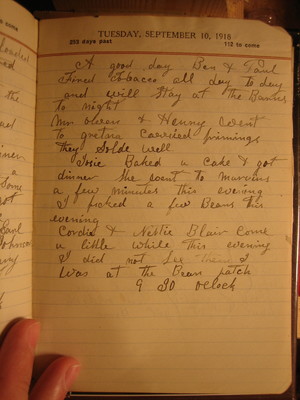 loaded
the
TUESDAY, SEPTEMBER 10, 1918
253 days past 112 to come
A good day Ben & Paul
Fired Tobacco all day to day
and will stay at the Barnes
to night
Mr Owen & Henry went
to gretna carried
They Solde well
Baked a Cake & got
dinner She went to
a few minutes this evening
I picked a few Beans this
evening
Cordie & Nettie Blair come
a little while this evening
I did not See them I
was at the Bean patch
9 30 oclock